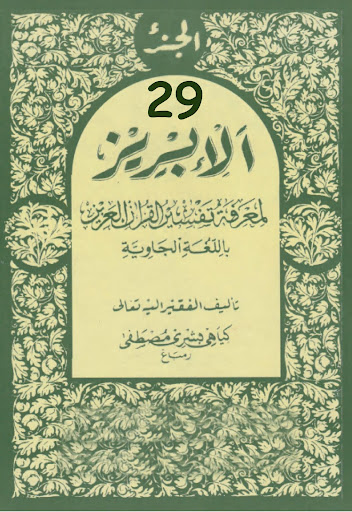 الجزء
29
الإبريز
لمعرفة تفسير القرآن العزيز
باللغة الجاوية
تأليف الفقير اليه تعالى
كياهي بشري مصطفى
رمباغ